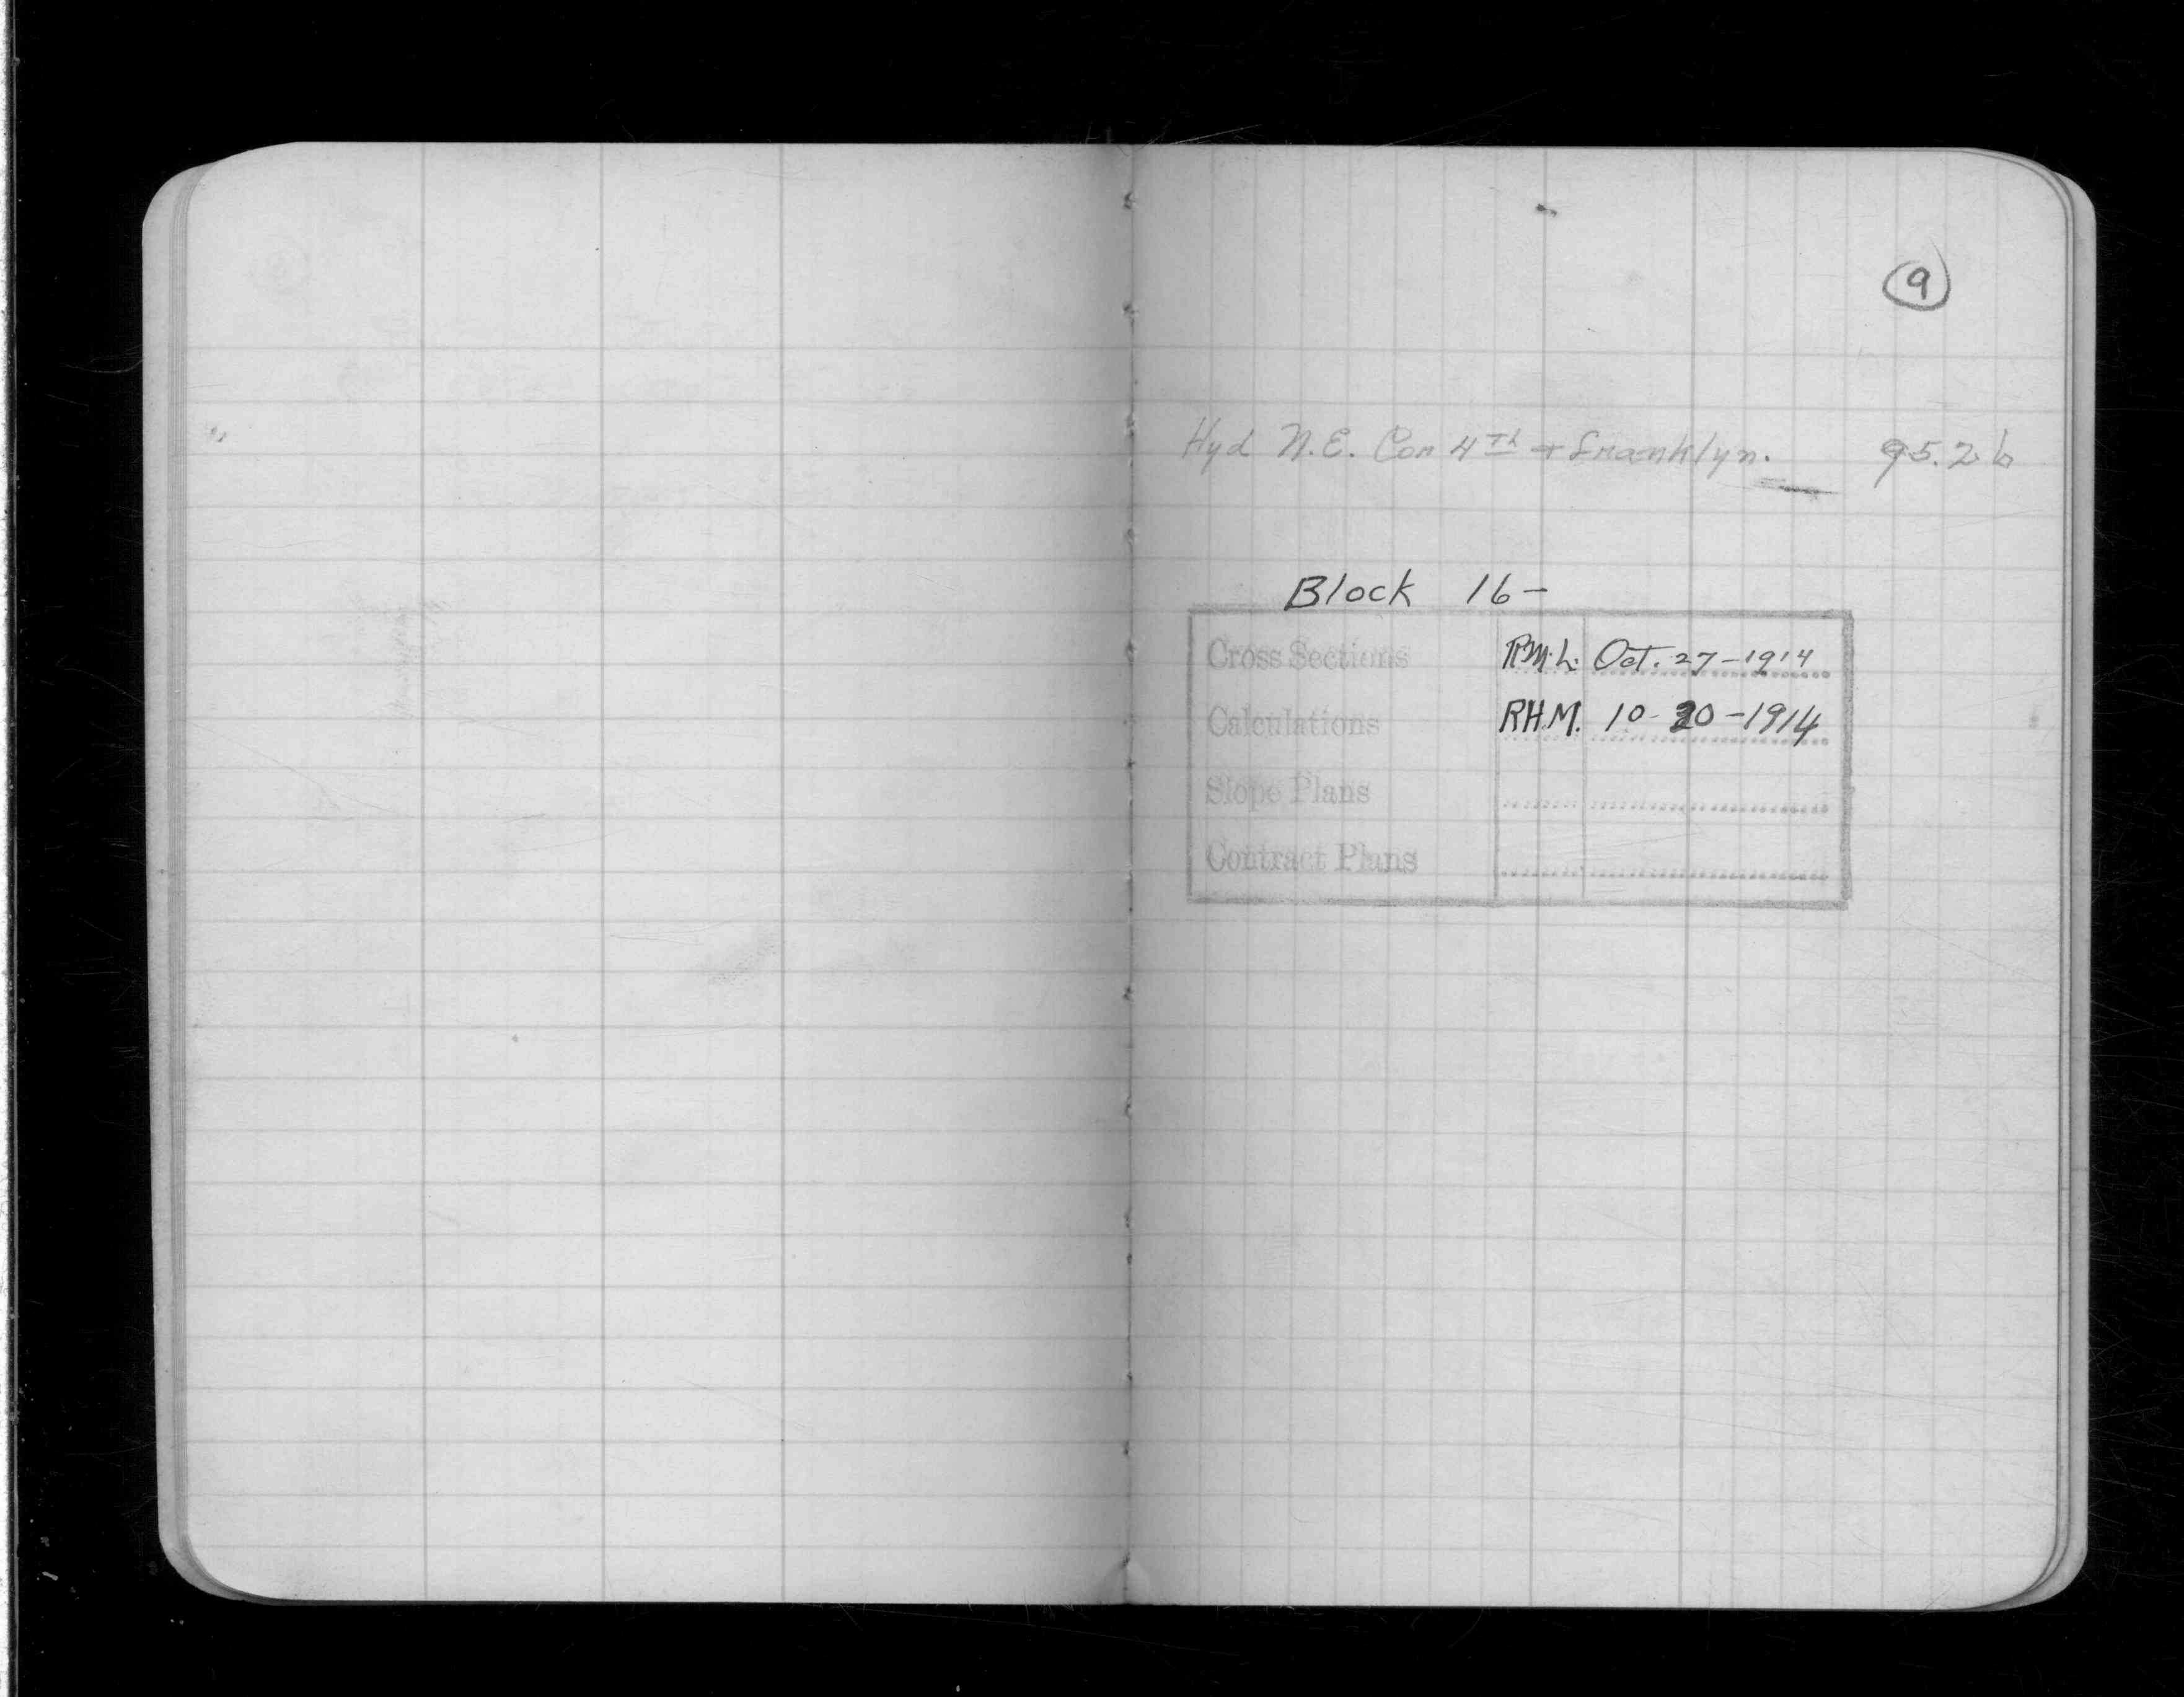 9
Hyd N.E. Cor 4th + Franklyn. 95.26
Block 16-
Cross Sections R.M.L. Oct. 27-1914
Calculations R.H.M. 10-20-1914
Slope Plans
Contract Plans